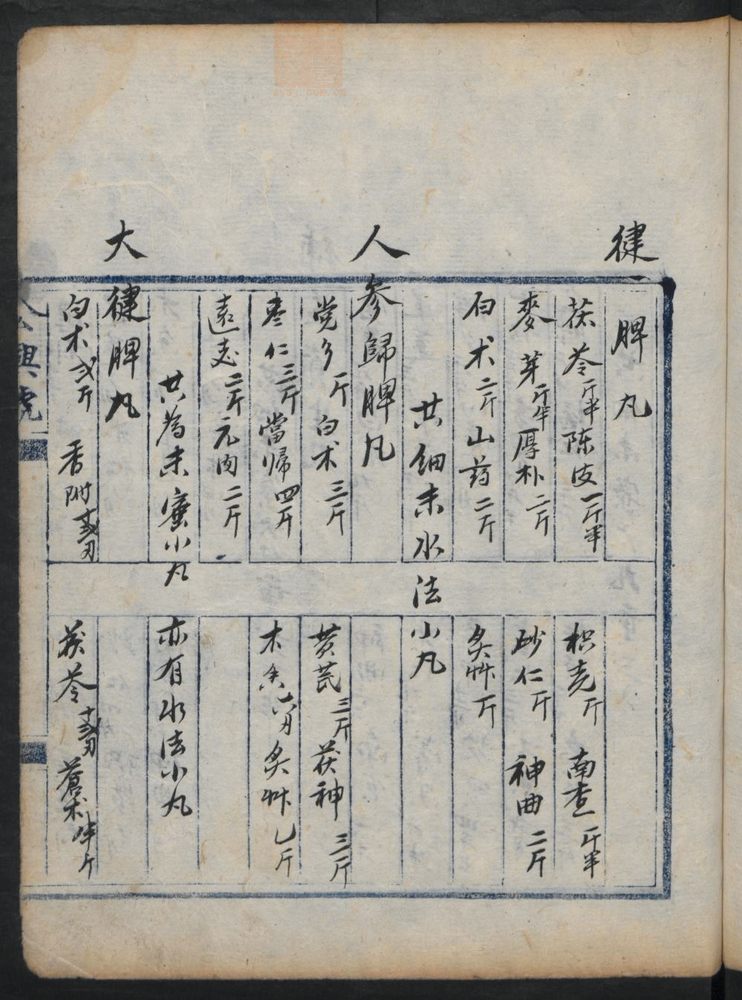 健脾丸
茯苓斤半 陈皮一斤半 枳壳斤 南查斤半
麥芽斤半 厚朴二斤 砂仁斤 神曲二斤
白术二斤 山药二斤 炙艸斤
共细末水法小丸
人參歸脾丸
党参斤 白术三斤 黄芪三斤 茯神三斤
枣仁三斤 當帰四斤 木香六刃 炙艸乙斤
遠志二斤 元肉二斤
共為末蜜小丸 亦有水法小丸
大健脾丸
白术弍斤 香附 茯苓 蒼术半斤
公興號